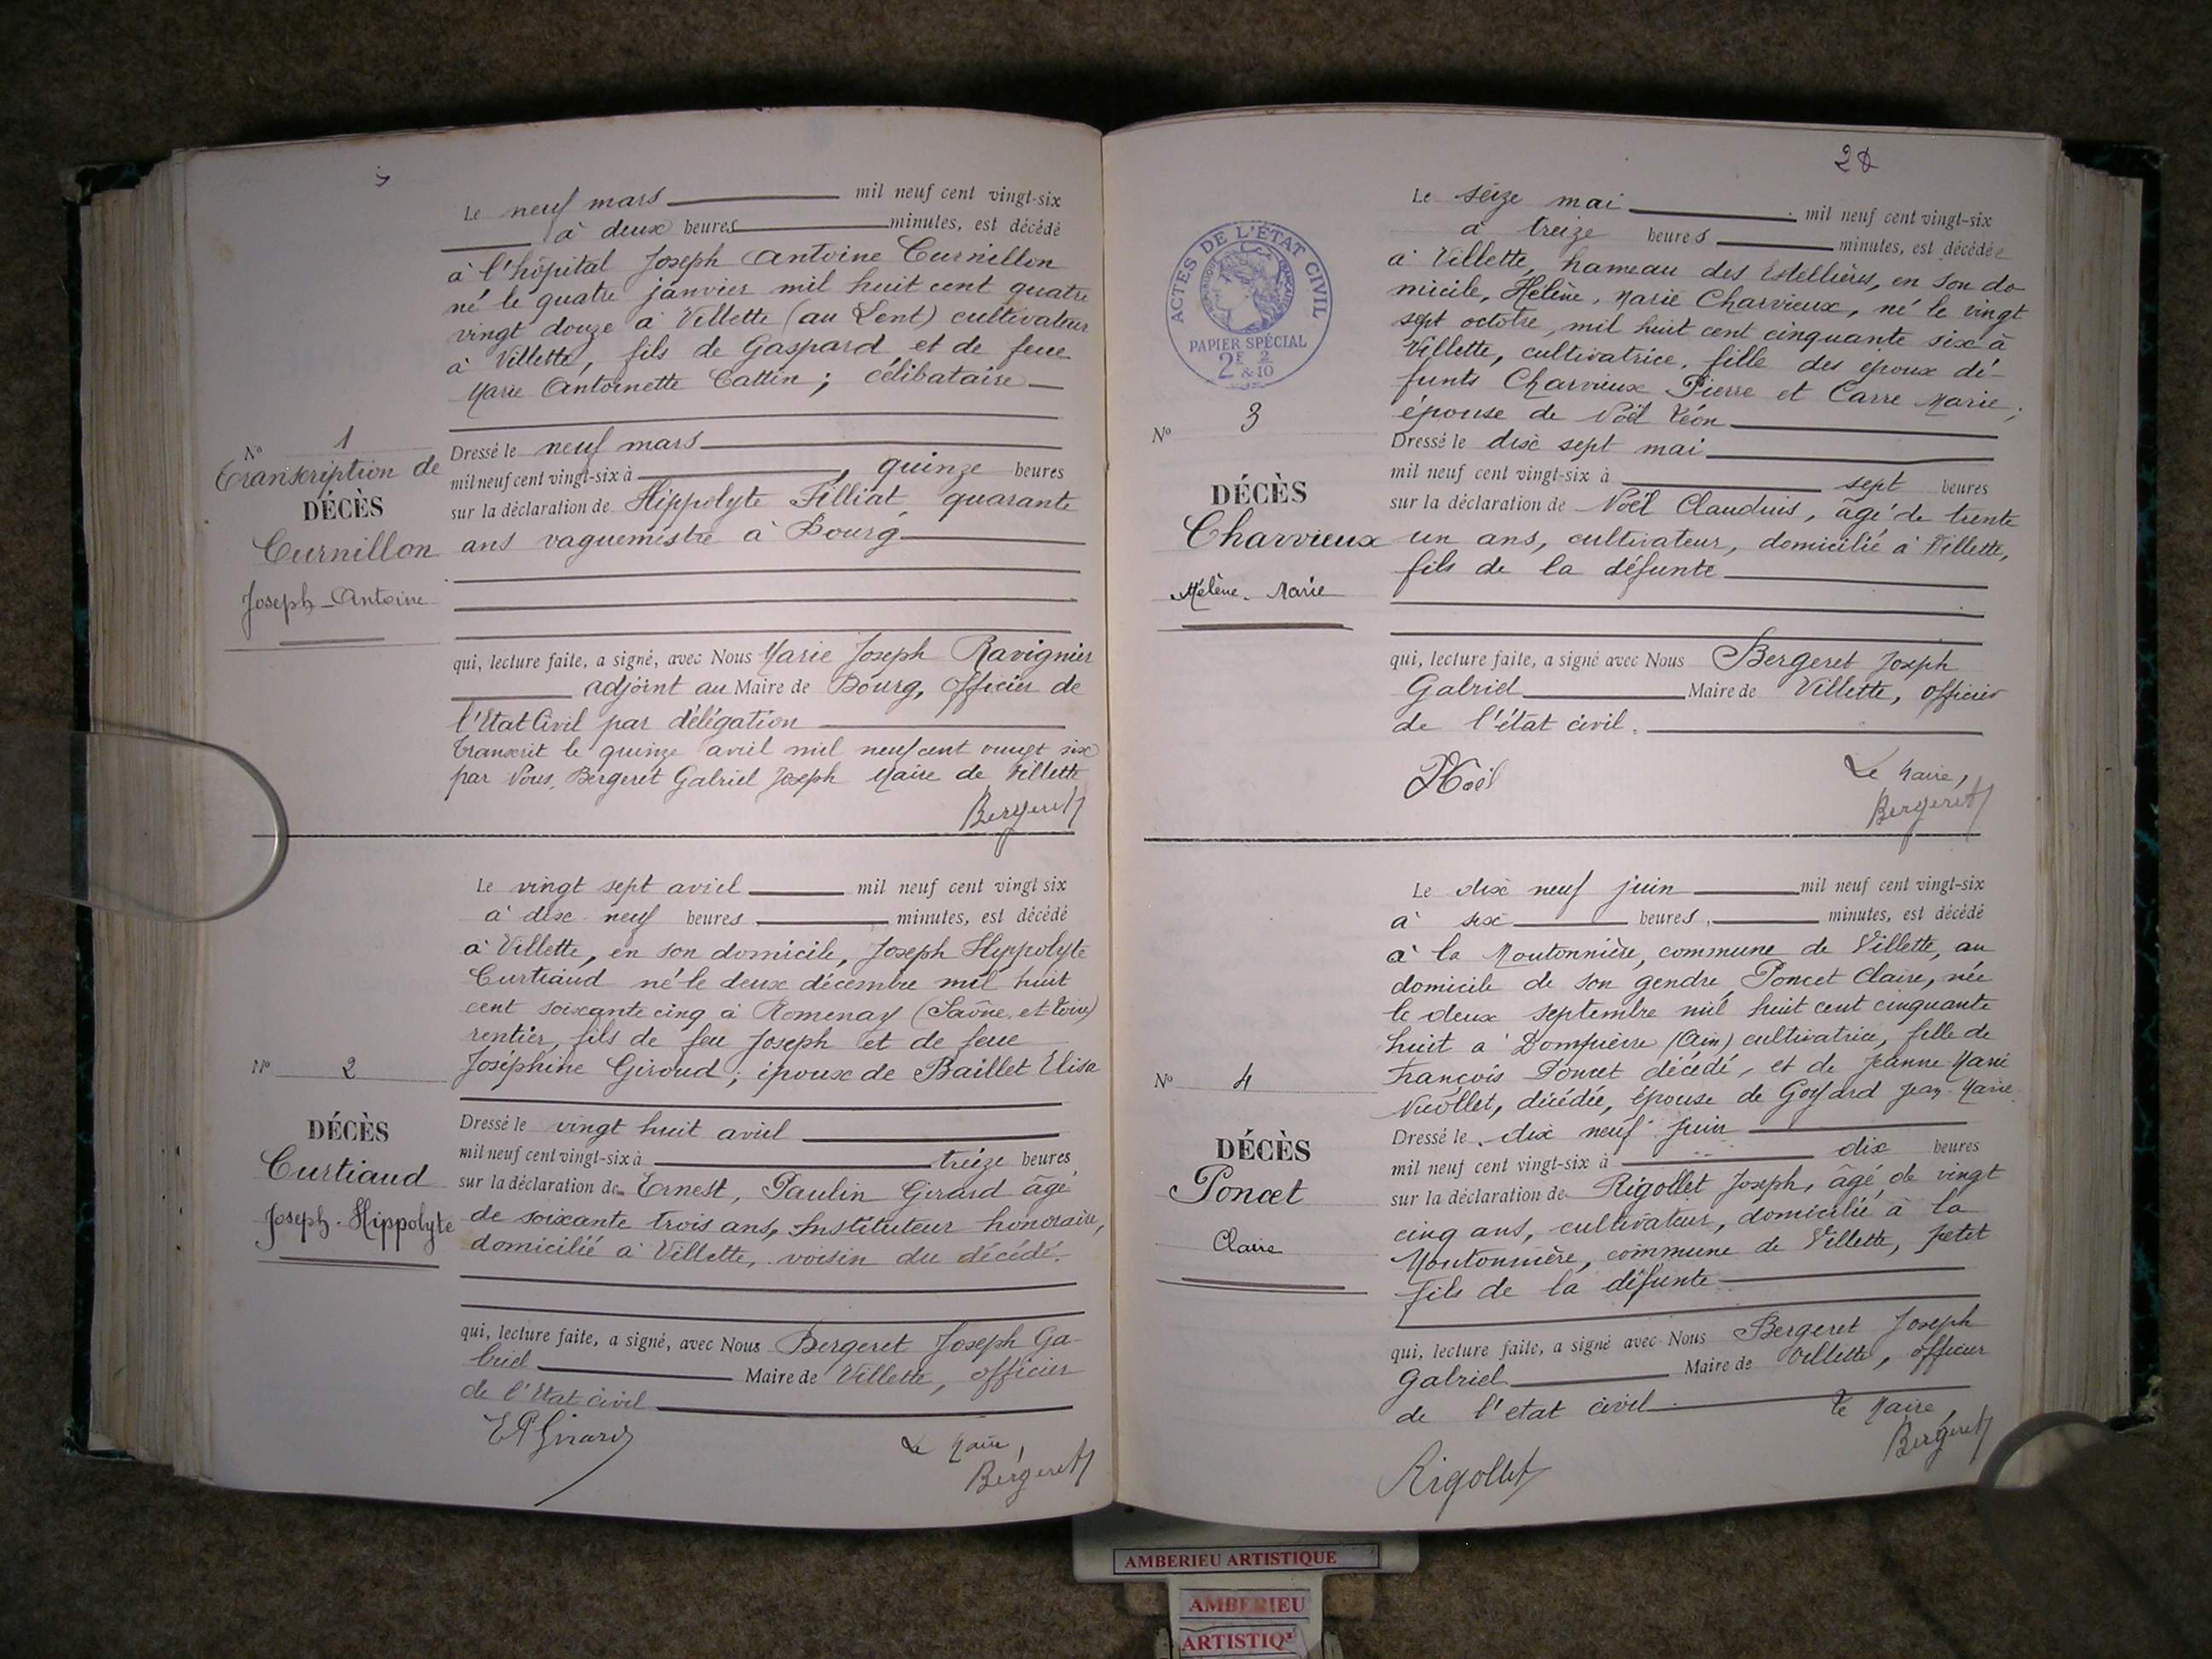 Le neuf mars mil neuf cent vingt-six
à deux heures minutes, est décédé
à l'hôpital Joseph Antoine Curnillon
né le quatre janvier mil huit cent quatre
vingt douze à Villette (au Lent) cultivateur
à Villette, fils de Gaspard et de feue
Marie Antoinette Cattin ; célibataire
No 1
Transcription de
DÉCÈS
Curnillon
Joseph-Antoine
Dressé le neuf mars
mil neuf cent vingt-six à , quinze heures
sur la déclaration de Hippolyte Filliat, quarante
ans vaguemestre à Bourg
qui, lecture faite, a signé, avec Nous Marie Joseph Ravignier
adjoint au Maire de Bourg, Officier de
l'Etat Civil par délégation
Transcrit le quinze avril mil neuf cent vingt six
par Nous, Bergeret Gabriel Joseph Maire de Villette
Bergeret
Le vingt sept avril mil neuf cent vingt six
à dix neuf heures minutes, est décédé
à Villette, en son domicile, Joseph Hippolyte
Curtiaud né le deux décembre mil huit
cent soixante cinq à Romenay (Saône et Loire)
rentier, fils de feu Joseph et de feue
Joséphine Giroud ; époux de Baillet Elisa
No 2
DÉCÈS
Curtiaud
Joseph-Hippolyte
Dressé le vingt huit avril
mil neuf cent vingt-six à treize heures
sur la déclaration de Ernest, Paulin Girard âgé
de soixante trois ans, Instituteur honoraire,
domicilié à Villette, voisin du décédé.
qui, lecture faite, a signé, avec Nous Bergeret Joseph Ga-
briel Maire de Villette, officier
de l'Etat civil
EPGirard
Le Maire,
Bergeret
28
Le seize mai mil neuf cent vingt-six
à treize heures minutes, est décédée
à Villette, hameau des Estellières, en son do
micile, Hélène, Marie Charvieux, né le vingt
sept octobre, mil huit cent cinquante six à
Villette, cultivatrice, fille des époux dé-
funts Charvieux Pierre et Carre Marie ;
épouse de Noël Léon
ACTES DE L'ÉTAT CIVIL
RÉPUBLIQUE FRANÇAISE
PAPIER SPÉCIAL
2E & 2/10
No 3
DÉCÈS
Charvieux
Hélène-Marie
Dressé le dix sept mai
mil neuf cent vingt-six à sept heures
sur la déclaration de Noël Claudius, âgé de trente
un ans, cultivateur, domicilié à Villette,
fils de la défunte
qui, lecture faite, a signé avec Nous Bergeret Joseph
Gabriel Maire de Villette, officier
de l'état civil.
Noël
Le Maire,
Bergeret
Le dix neuf juin mil neuf cent vingt-six
à six heures, minutes, est décédé
à la Moutonnière, commune de Villette, au
domicile de son gendre, Poncet Claire, née
le deux septembre mil huit cent cinquante
huit à Dompierre (Ain) cultivatrice, fille de
François Poncet décédé, et de Jeanne-Marie
Nicollet, décédée, épouse de Goyard Jean-Marie
No 4
DÉCÈS
Poncet
Claire
Dressé le dix neuf juin
mil neuf cent vingt-six à dix heures
sur la déclaration de Rigollet Joseph, âgé de vingt
cinq ans, cultivateur, domicilié à la
Moutonnière, commune de Villette, petit
fils de la défunte
qui, lecture faite, a signé avec Nous Bergeret Joseph
Gabriel Maire de Villette, officier
de l'etat civil
Le Maire,
Bergeret
Rigollet
AMBERIEU ARTISTIQUE
AMBERIEU
ARTISTIQ